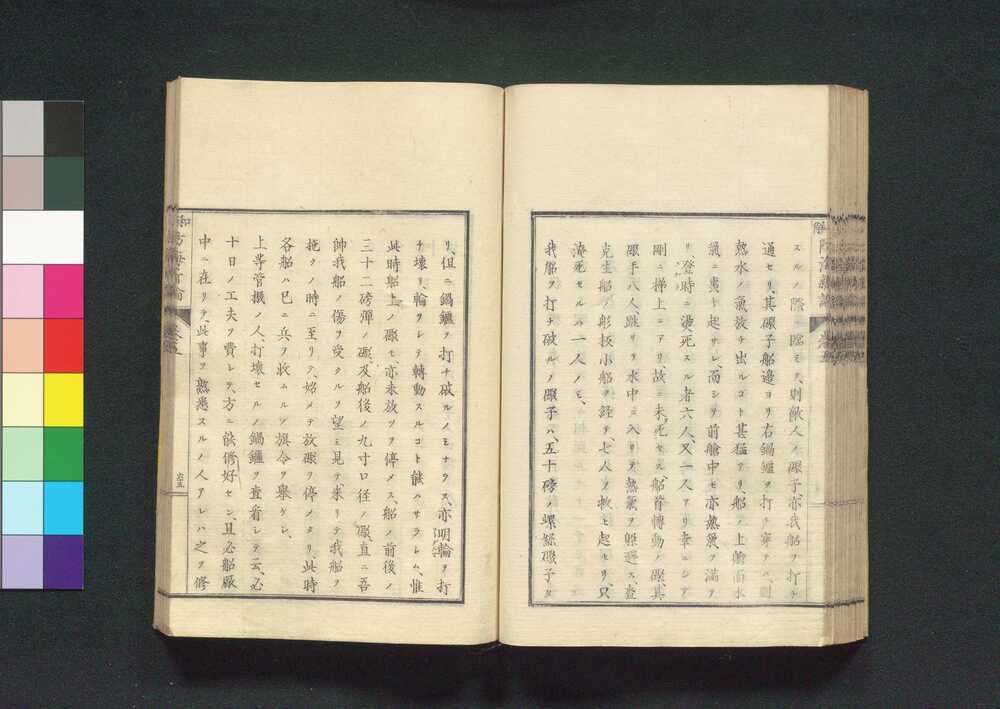 スルノ際ニ臨モヲ、則敵人ノ礮子亦我船ヲ打チ
通セリ、其礮子船邊ヨリ右鍋鑪ヲ打チ穿ツハ、則
熱水ノ氣放チ出ルコト甚猛ナリ、船ノ上艙面水
氣ニ衷ト起サレ、而シリ前艙中モ亦熱氣ヲ滿ア
リ登時ニ燙死スル者六人、又一人アリ幸ニシア
剛ニ梯上ニアリ故ニ未死セス、船脊轉動ノ礮、其
礮手八人、跳リリ水中ニ入リテ熱氣ヲ躱避ス、査
克生船ノ彤扳小船ヲ經テ、七人ヲ救ヒ起セリ、只
淹死セルハ一人ノミ、
我船ヲ打チ破ルノ礮子ハ、五十磅ノ螺絲礮子リタ
リ、但ニ鍋鑪ヲ打チ破ルノミナラス、亦明輪ヲ打
チ壊リ、輪ヲレテ轉動スルコト能ハサラレム、惟
此時船上ノ礮モ、亦未放ツヲ停メス、船ノ前後ノ
三十二磅彈ノ礮、及船後ノ九寸口徑ノ礮直ニ吾
帥我船ノ傷ヲ受クルヲ望ミ見テ、来リテ我船ヲ
拖クノ時ニ至リテ、始メテ放礮ヲ停メタリ、此時
各船ハ已ニ兵ヲ收ムルノ旗令ヲ舉ケレ、
上等管機ノ人、打壊セルノ鍋鑪ヲ査看レテ云、必
十日ノ工夫ヲ費レテ、方ニ能修好セン、且必船厰
中ニ在リテ、此事ヲ熟悉スルノ人アレハ之ヲ修